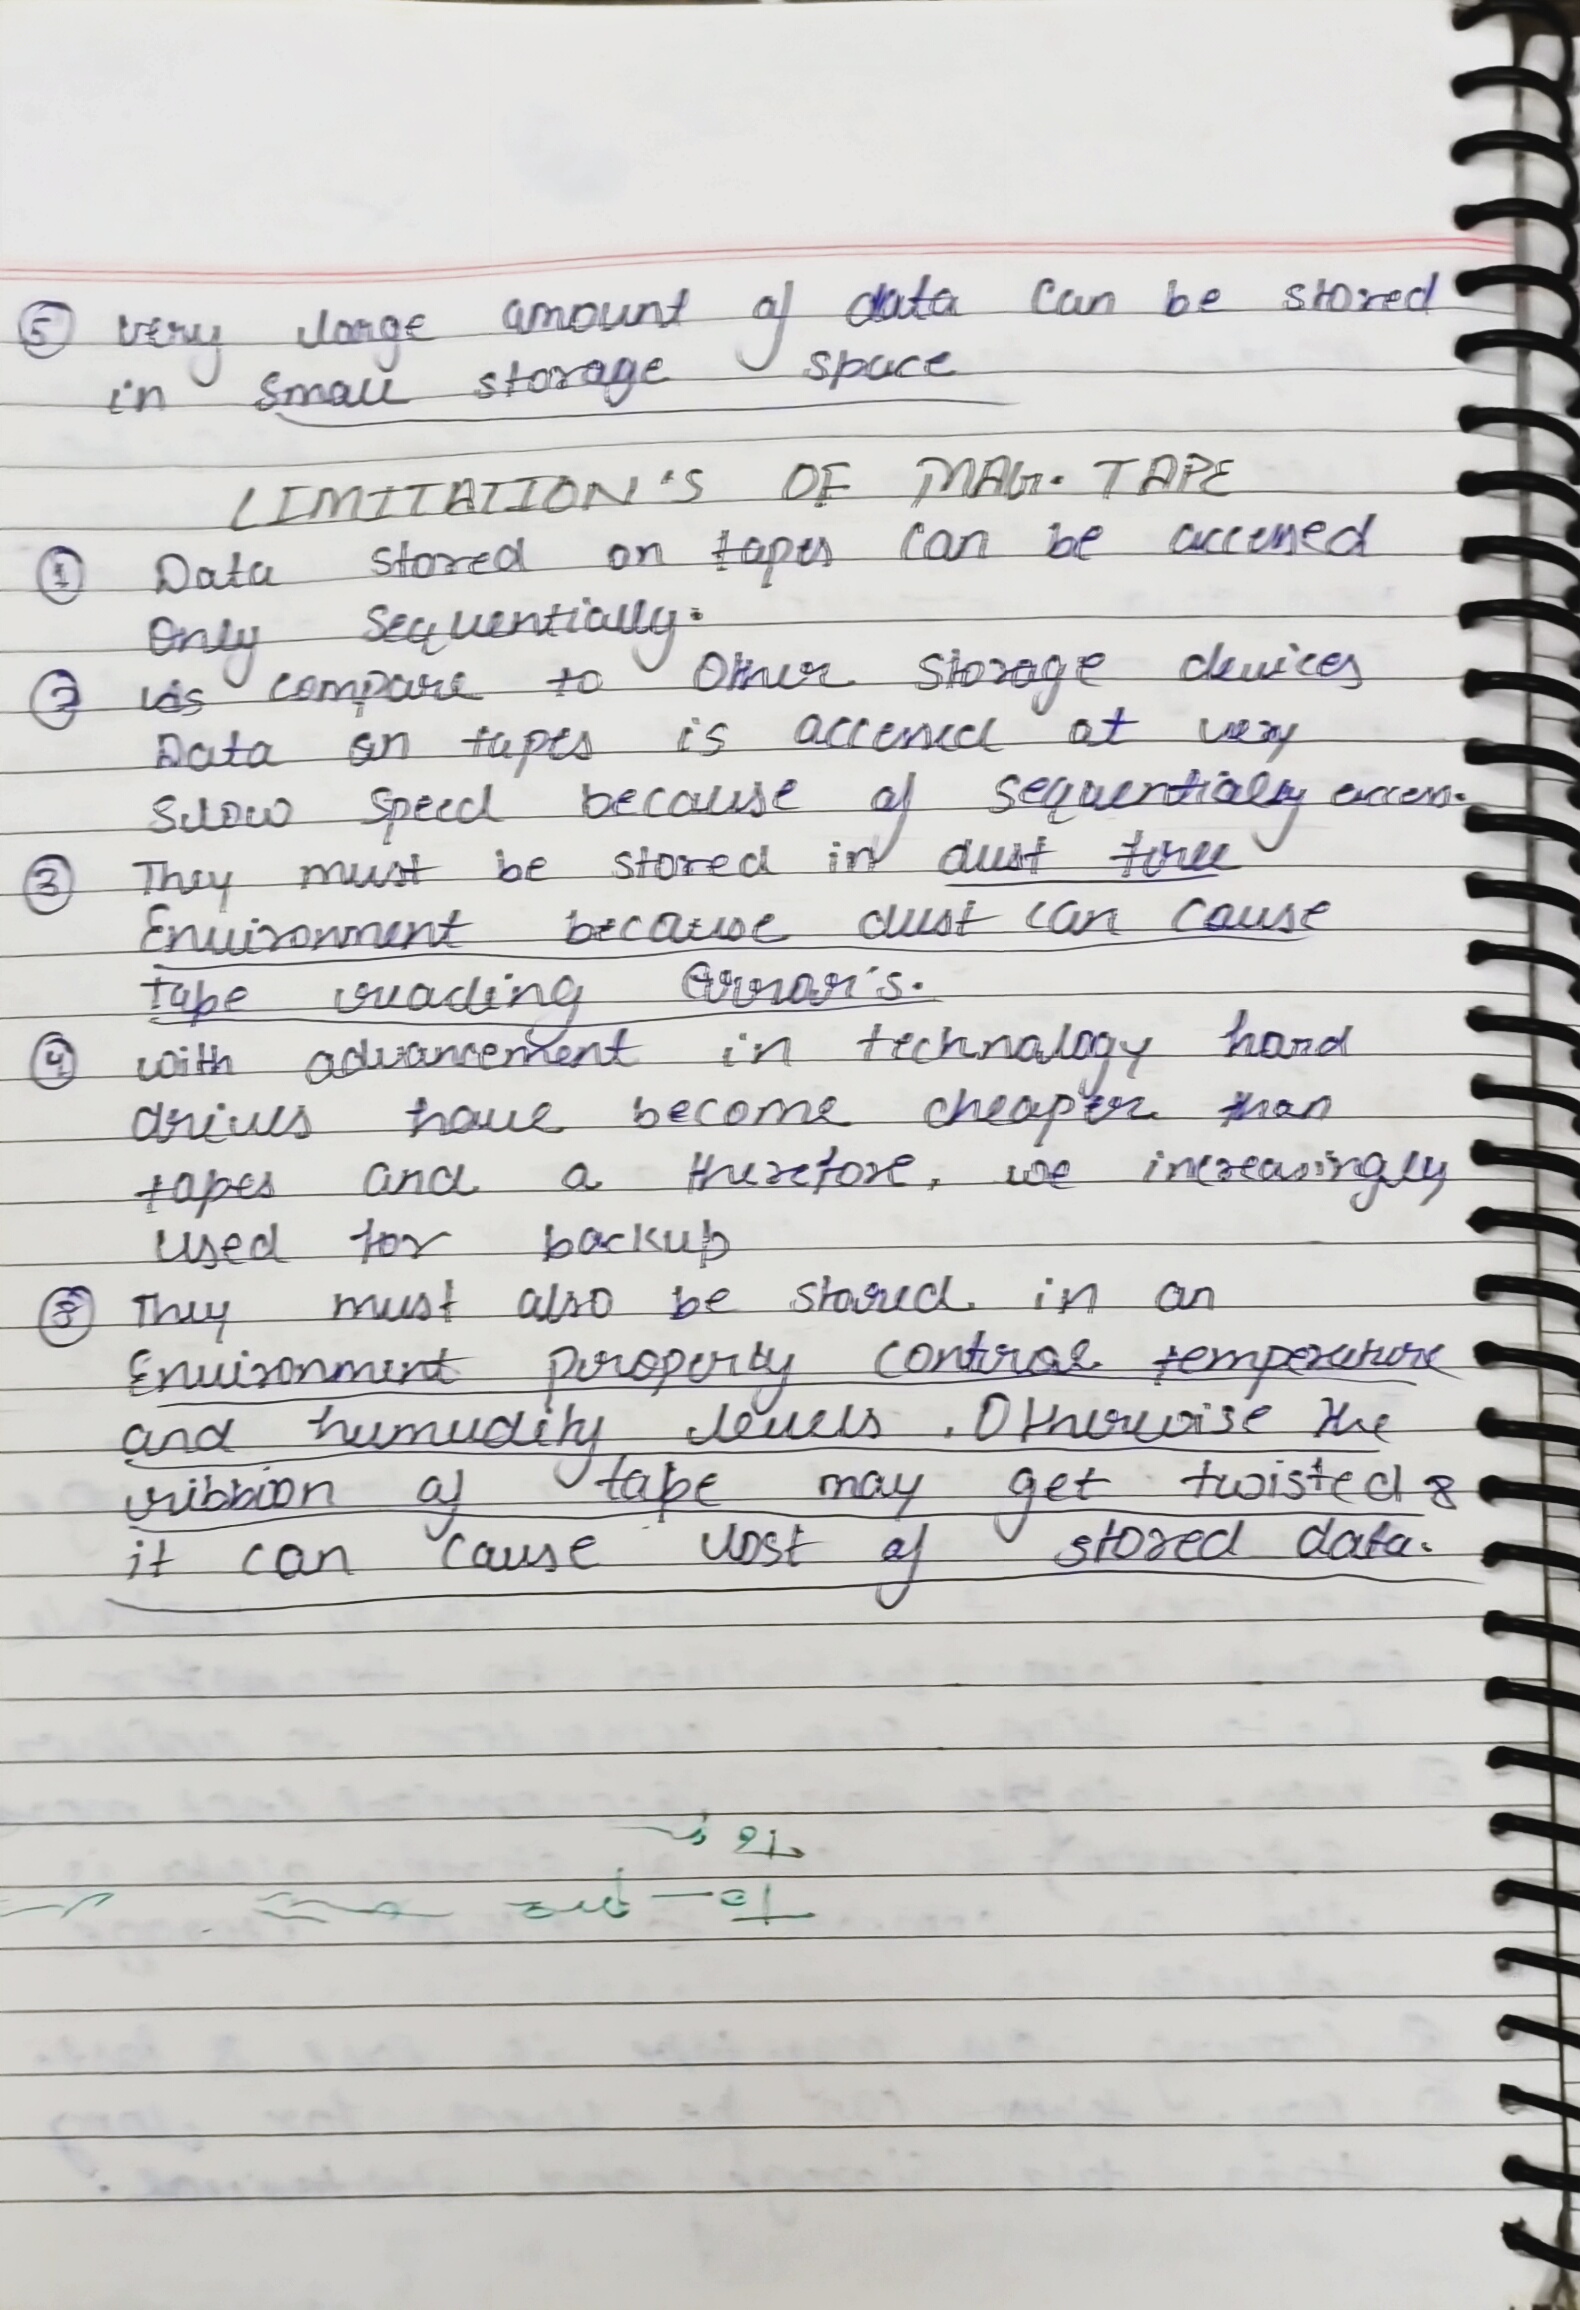 ⑤ very large amount of data can be stored
in small storage space
LIMITATION'S OF MAG. TAPE
① Data stored on tapes can be accessed
only sequentially.
② As compare to other storage devices
Data on tapes is accessed at very
slow speed because of sequentially access.
③ They must be stored in dust free
Environment because dust can cause
tape reading Error's.
④ with advancement in technology hard
drives have become cheaper than
tapes and a therefore, we increasingly
used for backup
⑤ They must also be stored in an
Environment properly control temperature
and humudity levels. Otherwise the
ribbion of tape may get twisted &
it can cause lost of stored data.